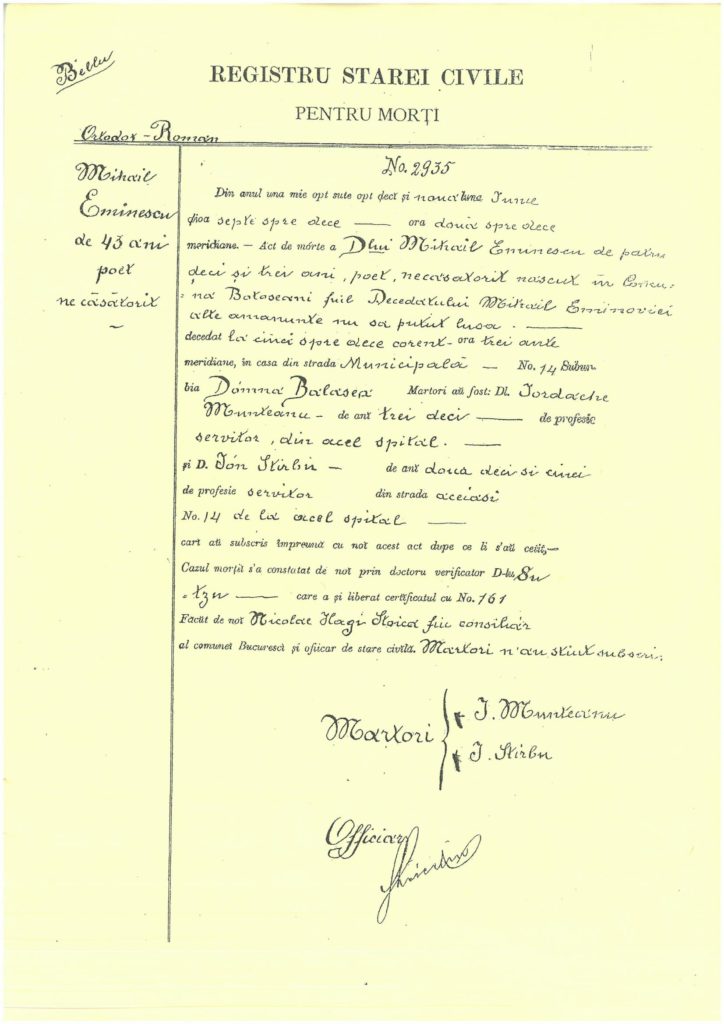 Bellu
REGISTRU STAREI CIVILE
PENTRU MORȚI
Ortodox - Român
Mihail
Eminescu
de 43 ani
poet
necăsătorit
No. 2935
Din anul una mie opt sute opt deci și nouă luna Iunie
dioa septe spre dece — ora două spre dece
meridiane. — Act de mórte a Dlui Mihail Eminescu de patru
deci și trei ani, poet, necăsatorit născut în Comu-
nă Botoseani fiul Decedatului Mihail Eminovici
alte amănunte nu sa putut lua. —
decedat la cinci spre dece corent - ora trei ante
meridiane, în casa din strada Municipală — No. 14 Subur-
bia Dómna Balasea Martori aŭ fost: Dl. Iordache
Munteanu - de anĭ trei deci — de profesie
servitor, din acel spital. —
și D. Ión Stirbu - de anĭ doua deci si cinci
de profesie servitor din strada aceiasi
No. 14 de la acel spital —
carĭ aŭ subscris împreună cu noĭ acest act dupe ce li s'aŭ cetit,—
Cazul morțiĭ s'a constatat de noĭ prin doctoru verificator D-lu Su
tzu — care a și liberat certificatul cu No. 161
Făcut de noĭ Nicolae Hagi Stoica fiu consiliar
al comuneĭ Bucurescĭ și oficiar de stare civilă. Martori n'au stiut subscri.
Martori
+ I. Munteanu
+ I. Stirbu
Officiar